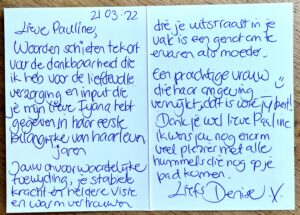 21 03 '22
Lieve Pauline,
Woorden schieten tekort
voor de dankbaarheid die
ik heb voor de liefdevolle
verzorging en input die
je mijn lieve Iyana hebt
gegeven in haar eerste
belangrijke van haar leven
jaren
Jouw onvoorwaardelijke
toewijding, je stabiele
kracht en heldere visie
en warm vertrouwen
die je uitstraalt in je
vak is een genot om te
ervaren als moeder.
Een prachtige vrouw
die haar omgeving
verrijkt, dat is wie jij bent!
Dank je wel lieve Pauline
ik wens jou nog enorm
veel plezier met alle
hummels die nog op je
pad komen.
Liefs Denise X